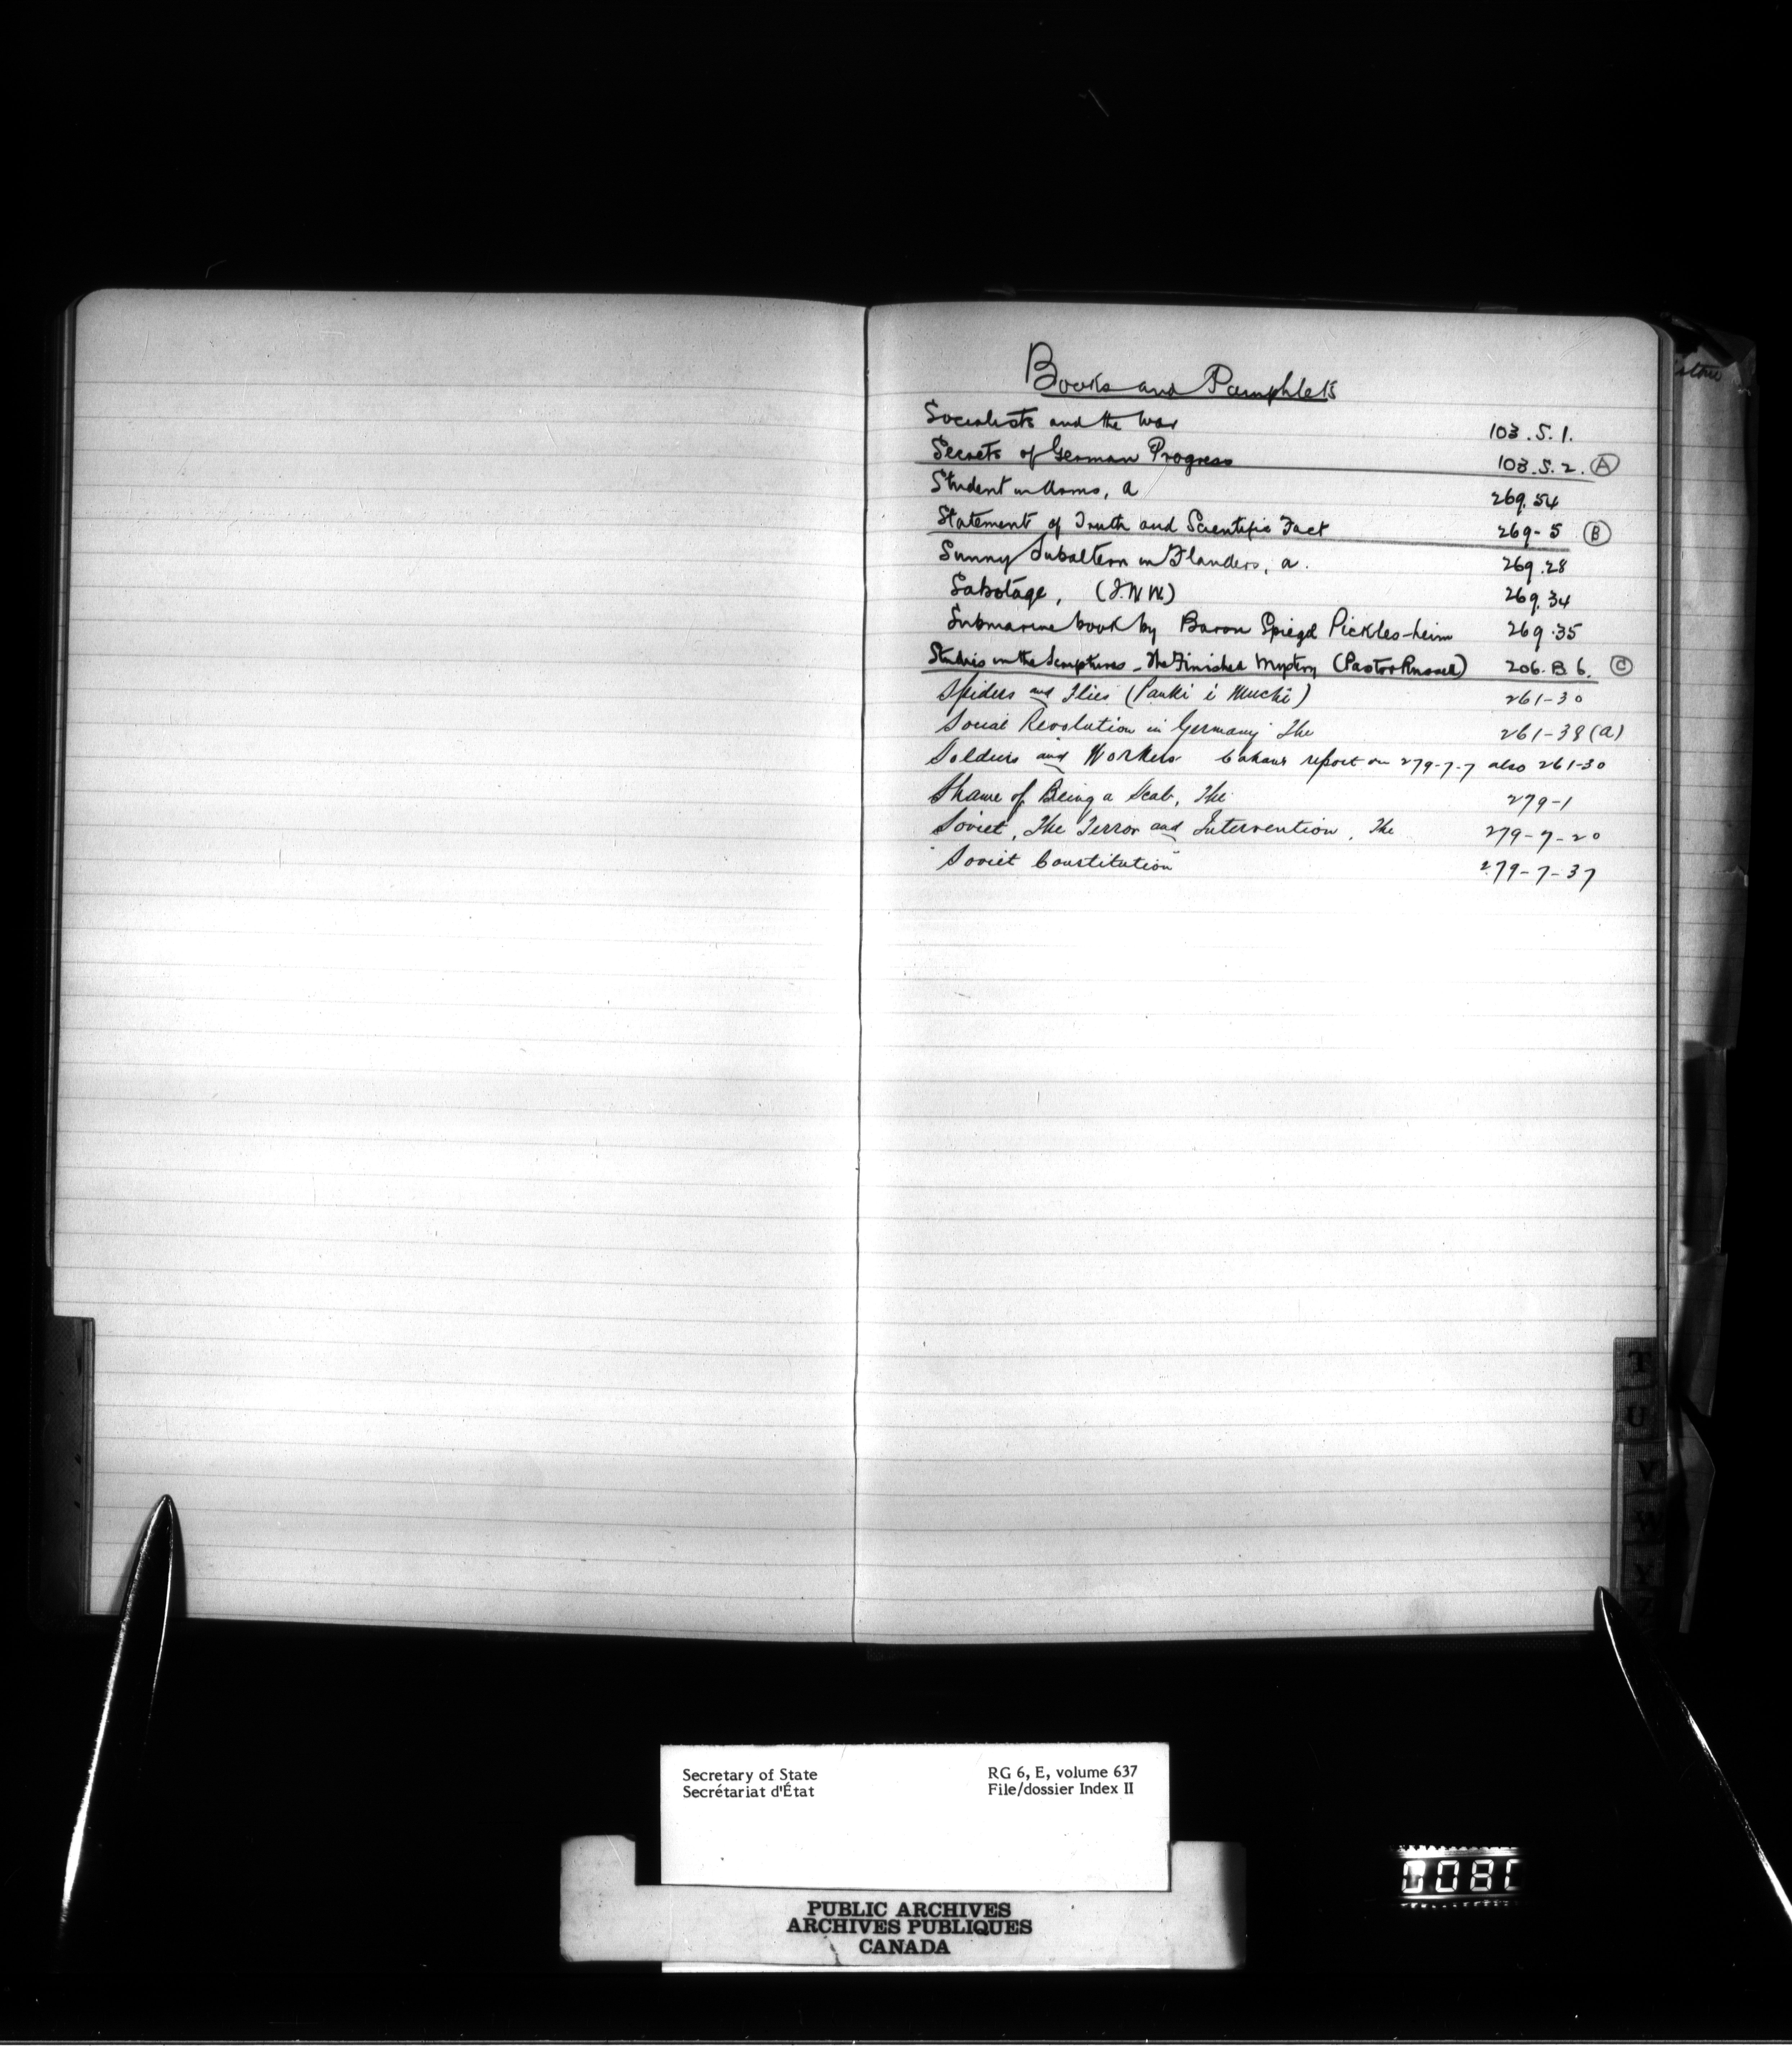 Books and Pamphlets
Socialists and the War 103.S.1.
Secrets of German Progress 103.S.2. A
Student in Arms, a 269.54
Statement of Truth and Scientific Fact 269-5 B
Sunny Subaltern in Flanders, a. 269.28
Sabotage, (I.W.W.) 269.34
Submarine book by Baron Spiegel Pickles-heim 269.35
Studies in the Scriptures - The Finished Mystery (Pastor Russell) 206.B 6. C
Spiders and Flies (Pauki i Muchi) 261-30
Social Revolution in Germany The 261-38(a)
Soldiers and Workers report on 279-7-7 also 261-30
Shame of Being a Scab, The 279-1
Soviet, The Terror and Intervention, The 279-7-20
"Soviet Constitution" 279-7-37
T
U
V
W
Y
Z
Secretary of State RG 6, E, volume 637
Secrétariat d'État File/dossier Index II
PUBLIC ARCHIVES
ARCHIVES PUBLIQUES
CANADA